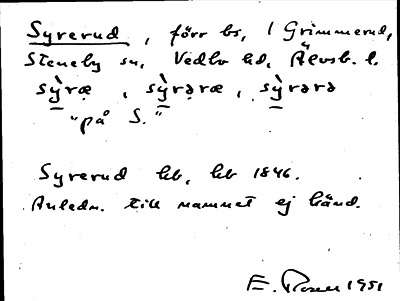 Syrerud, förr bs, / Grimmerud,
Steneby sn, Vedbo hd, Älvsb. l.
sỳræ, sỳrəræ, sỳrərə
"på S."
Syrerud hb, hb 1846.
Anledn. till namnet ej känd.
E. Rosell 1951